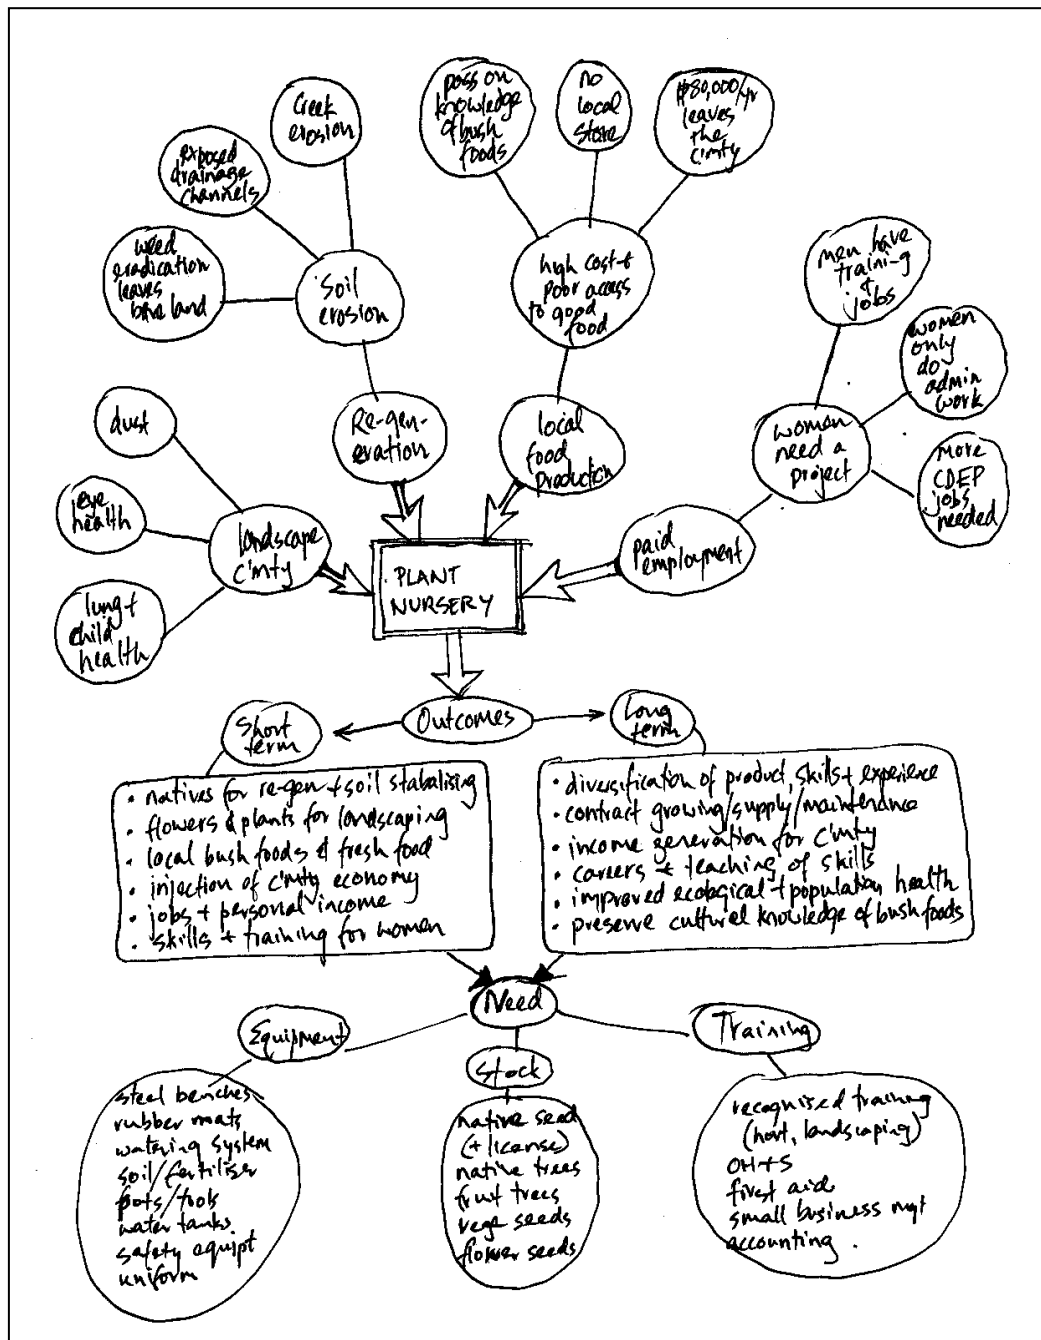 Creek
erosion
exposed
drainage
channels
weed
eradication
leaves
bare land
soil
erosion
Re-gen-
eration
pass on
knowledge
of bush
foods
no
local
store
$80,000/yr
leaves
the
c'mty
high cost +
poor access
to good
food
local
food
production
men have
training
+
jobs
women
only
do
admin
work
more
CDEP
jobs
needed
women
need a
project
paid
employment
dust
eye
health
lung +
child
health
landscape
c'mty
PLANT
NURSERY
Outcomes
Short
term
Long
term
• natives for re-gen + soil stabalising
• flowers & plants for landscaping
• local bush foods & fresh food
• injection of c'mty economy
• jobs + personal income
• skills + training for women
• diversification of product, skills + experience
• contract growing/supply/maintenance
• income generation for c'mty
• careers + teaching of skills
• improved ecological + population health
• preserve cultural knowledge of bush foods
Need
Equipment
steel benches
rubber mats
watering system
soil/fertiliser
pots/tools
water tanks
safety equipt
uniform
Stock
native seed
(+ license)
native trees
fruit trees
vege seeds
flower seeds
Training
recognised training
(hort, landscaping)
OH+S
first aid
small business mgt
accounting.